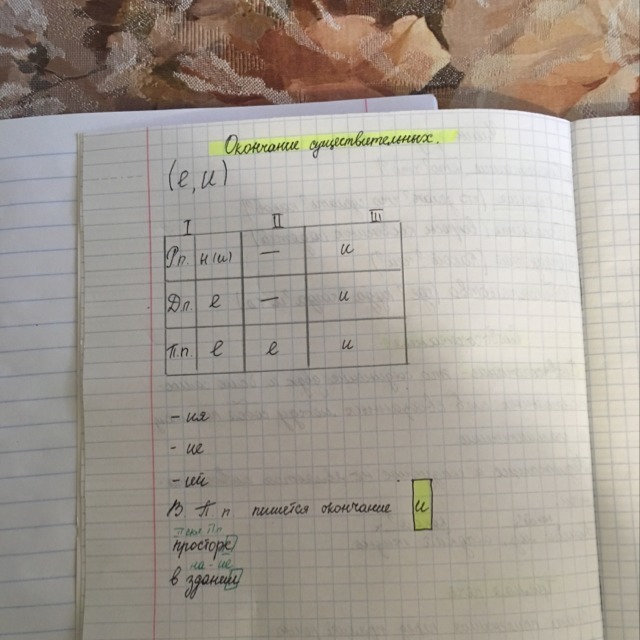 Окончание существительных.
(е, и)
I II III
Р.п. — и
Д.п. е — и
П.п. е е и
- ия
- ие
- ий
В П п пишется окончание и
просторе
в здании